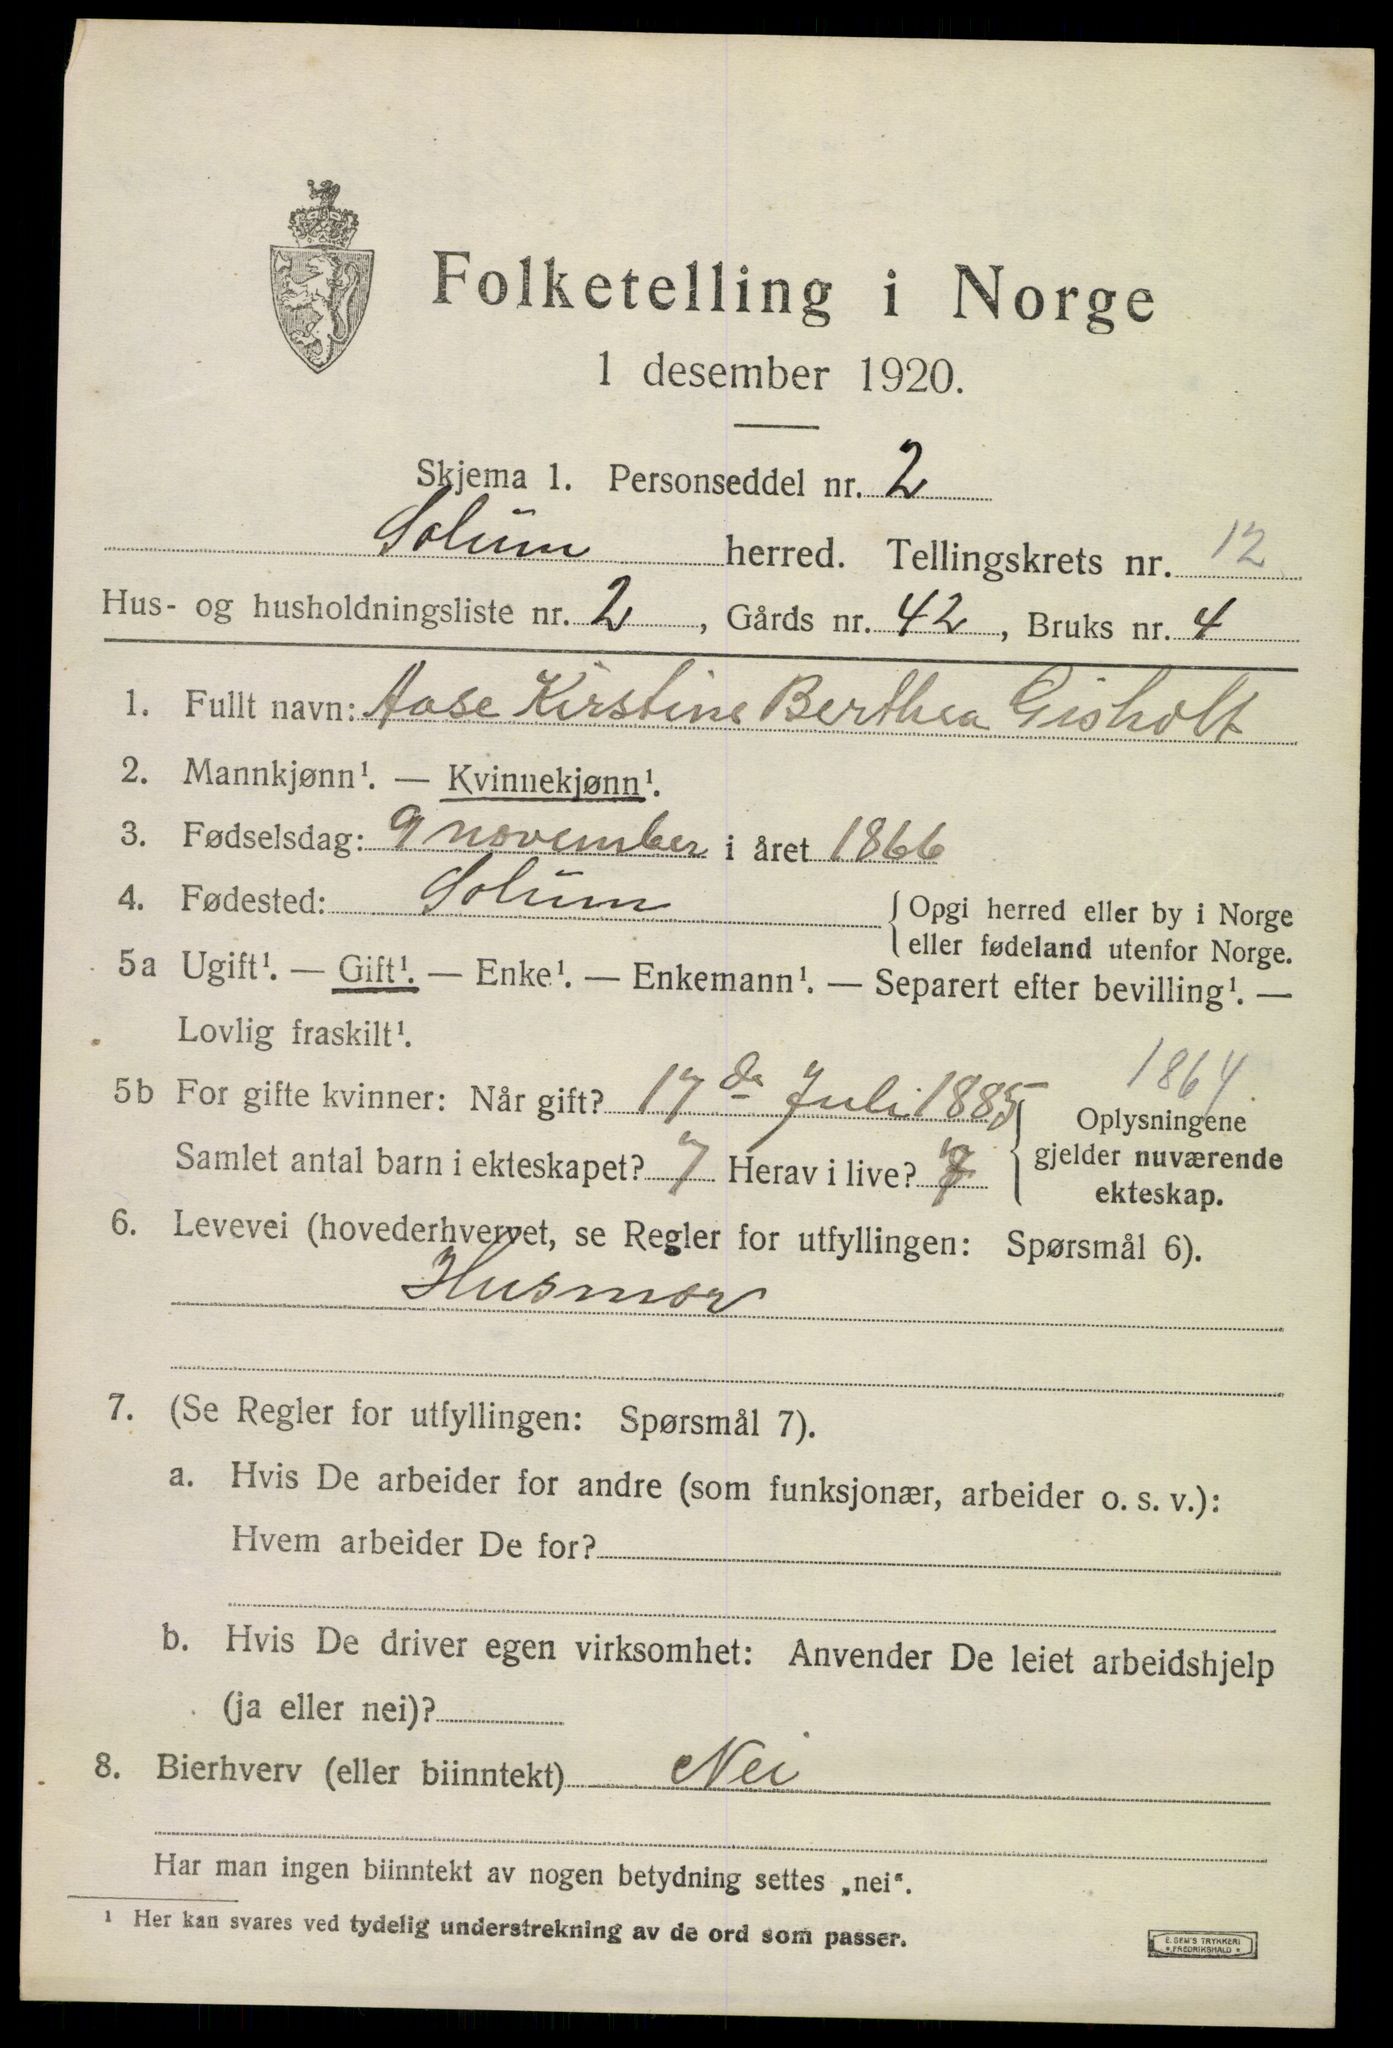 Folketelling i Norge
1 desember 1920.
Skjema 1. Personseddel nr. 2
Solum herred. Tellingskrets nr. 12
Hus- og husholdningsliste nr. 2, Gårds nr. 42, Bruks nr. 4
1. Fullt navn: Aase Kirstine Berthea Gisholt
2. Mannkjønn¹. — Kvinnekjønn¹.
3. Fødselsdag: 9 november i året 1866
4. Fødested: Solum { Opgi herred eller by i Norge
eller fødeland utenfor Norge.
5a Ugift¹. — Gift¹. — Enke¹. — Enkemann¹. — Separert efter bevilling¹. —
Lovlig fraskilt¹.
1864
5b For gifte kvinner: Når gift? 17de Juli 1885 { Oplysningene
gjelder nuværende
ekteskap.
Samlet antal barn i ekteskapet? 7 Herav i live? 7
6. Levevei (hovederhvervet, se Regler for utfyllingen: Spørsmål 6).
Husmor
7. (Se Regler for utfyllingen: Spørsmål 7).
a. Hvis De arbeider for andre (som funksjonær, arbeider o. s. v.):
Hvem arbeider De for?
b. Hvis De driver egen virksomhet: Anvender De leiet arbeidshjelp
(ja eller nei)?
8. Bierhverv (eller biinntekt) Nei
Har man ingen biinntekt av nogen betydning settes „nei“.
¹ Her kan svares ved tydelig understrekning av de ord som passer.
E. SEM'S TRYKKERI
* FREDRIKSHALD *